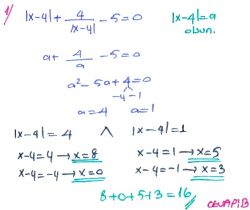 1) |x-4| + 4/|x-4| - 5 = 0    |x-4| = a olsun.
a + 4/a - 5 = 0
a² - 5a + 4 = 0
-4 -1
a = 4    a = 1
|x-4| = 4    ∧    |x-4| = 1
x-4 = 4 → x = 8    x-4 = 1 → x = 5
x-4 = -4 → x = 0    x-4 = -1 → x = 3
8+0+5+3 = 16
CEVAP: B